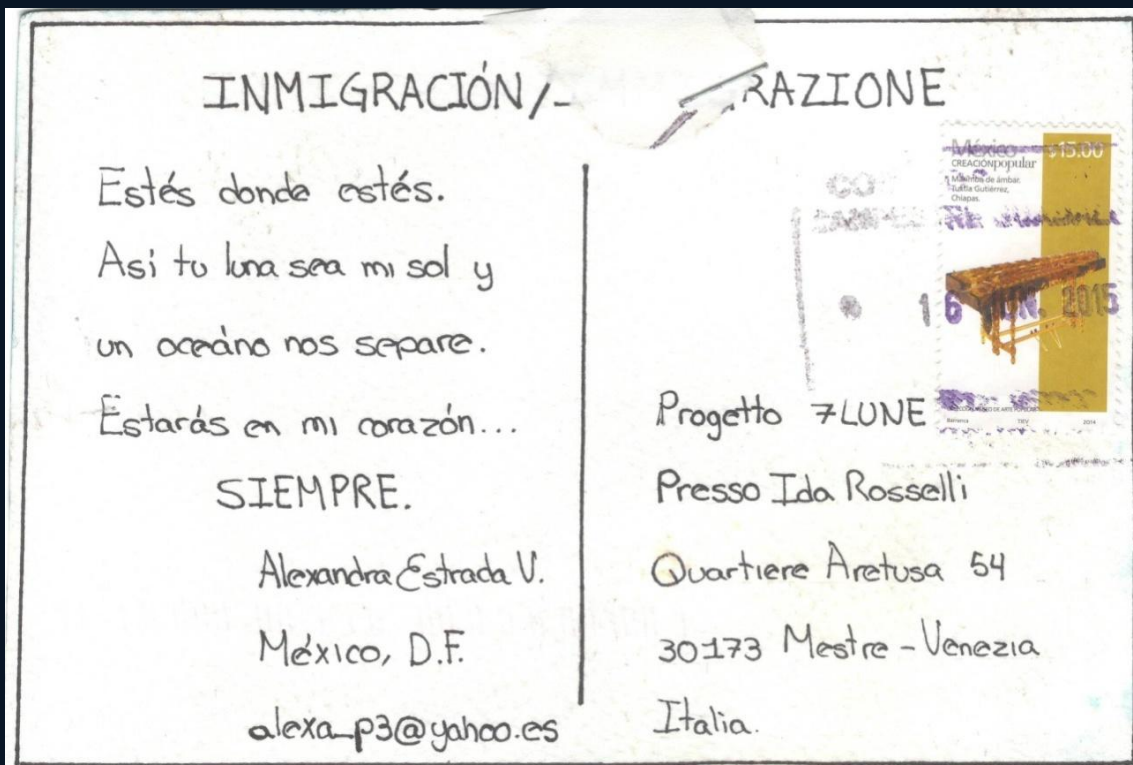 INMIGRACIÓN/ RAZIONE
Estés donde estés.
Asi tu luna sea mi sol y
un oceáno nos separe.
Estarás en mi corazón...
SIEMPRE.
Alexandra Estrada V.
México, D.F.
alexa_p3@yahoo.es
México $15.00
CREACIÓN popular
de ámbar.
Tuxtla Gutiérrez,
Chiapas.
16 JUN. 2015
TIEV 2014
Progetto 7LUNE
Presso Ida Rosselli
Quartiere Aretusa 54
30173 Mestre - Venezia
Italia.